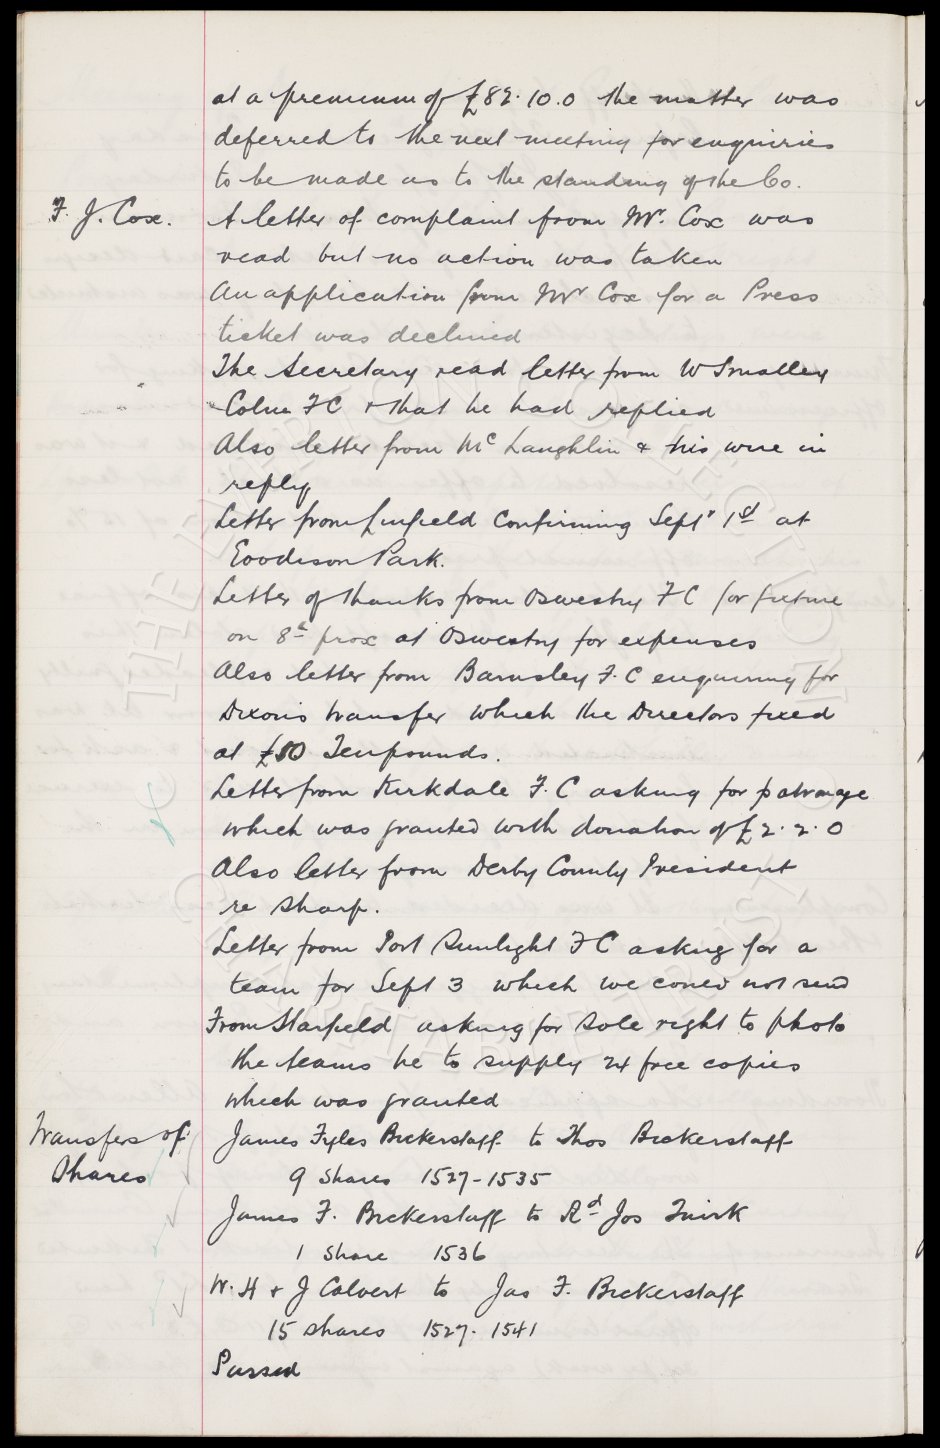 at a premium of £82.10.0 the matter was
deferred to the next meeting for enquiries
to be made as to the standing of the Co.
F. J. Cox.
A letter of complaint from Mr. Cox was
read but no action was taken
An application from Mr Cox for a Press
ticket was declined
The Secretary read letter from W Smalley
Colne FC & that he had replied
Also letter from Mc Laughlin & his wire in
reply
Letter from Linfield Confirming Sept 1st at
Goodison Park.
Letter of thanks from Oswestry FC for fixture
on 8th prox at Oswestry for expenses
Also letter from Barnsley F.C enquiring for
Dixons transfer which the Directors fixed
at £10 Ten pounds.
Letter from Kirkdale F.C asking for patronage
which was granted with donation of £2.2.0
Also letter from Derby County President
re Sharp.
Letter from Port Sunlight FC asking for a
team for Sept 3 which we could not send
From Starfield asking for sole right to photo
the teams he to supply 24 free copies
which was granted
Transfers of
Shares
James Fyles Bickerstaff to Thos Bickerstaff
9 Shares 1527-1535
James F. Bickerstaff to Rd Jos Quirk
1 Share 1536
W.H & J Calvert to Jas F. Bickerstaff
15 shares 1527-1541
Passed